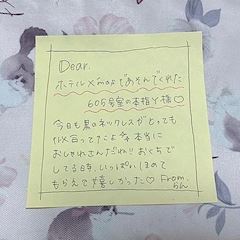 Dear.
ホテルXmasであそんでくれた
605号室の本指Y様♡
今日も黒のネックレスがとっても
似合ってたよ 本当に
おしゃれさんだね!! おくちで
してる時、いっぱいほめて
もらえて嬉しかった♡ From.